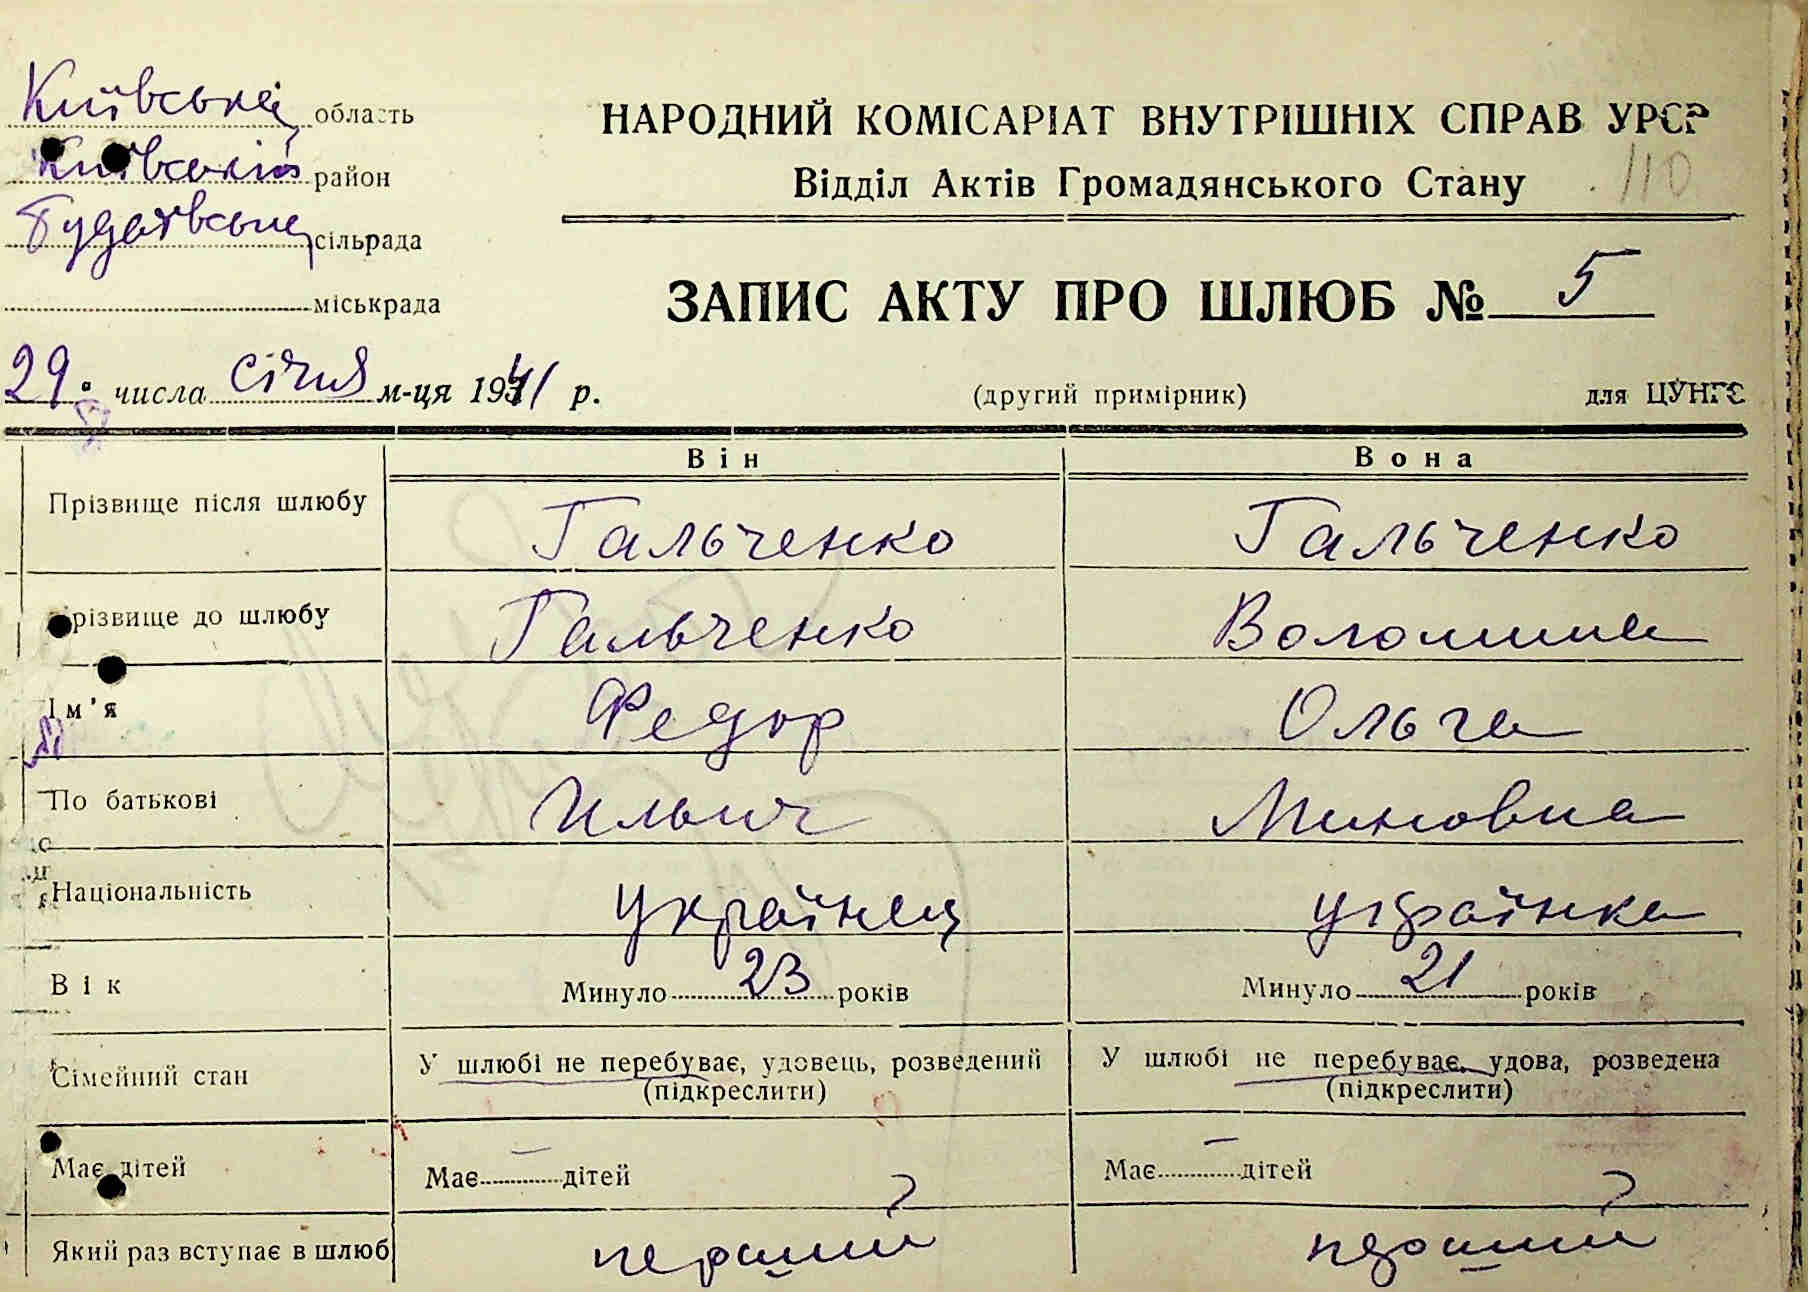 Київська область
Київський район
Будаївська сільрада
міськрада
29 числа січня м-ця 1941 р.
НАРОДНИЙ КОМІСАРІАТ ВНУТРІШНІХ СПРАВ УРСР
Відділ Актів Громадянського Стану
110
ЗАПИС АКТУ ПРО ШЛЮБ № 5
(другий примірник) для ЦУНГО
Він Вона
Прізвище після шлюбу Гальченко Гальченко
Прізвище до шлюбу Гальченко Волошина
Ім'я Федор Ольга
По батькові Ильич Миновна
Національність українец українка
Вік Минуло 23 років Минуло 21 років
Сімейний стан У шлюбі не перебуває, удовець, розведений У шлюбі не перебуває, удова, розведена
(підкреслити) (підкреслити)
Має дітей Має — дітей Має — дітей
Який раз вступає в шлюб перший перший